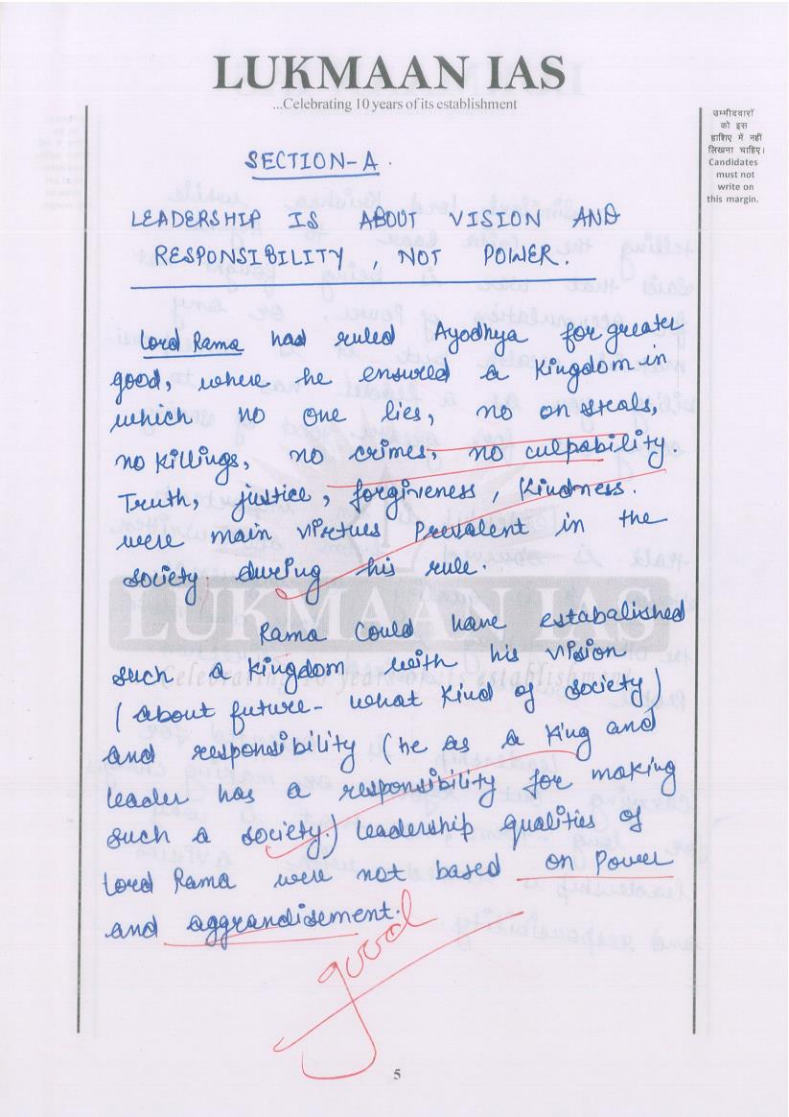 LUKMAAN IAS
...Celebrating 10 years of its establishment
उम्मीदवारों
को इस
हाशिए में नहीं
लिखना चाहिए।
Candidates
must not
write on
this margin.
SECTION-A.
LEADERSHIP IS ABOUT VISION AND
RESPONSIBILITY, NOT POWER.
Lord Rama had ruled Ayodhya for greater
good, where he ensured a Kingdom in
which no one lies, no on steals,
no killings, no crimes, no culpability.
Truth, justice, forgiveness, Kindness.
were main virtues prevalent in the
society during his rule.
LUKMAAN IAS
Celebrating 10 years of its establishment
Rama could have estabalished
such a kingdom with his vision
(about future- what kind of society)
and responsibility (he as a King and
leader has a responsibility for making
such a society.) leadership qualities of
Lord Rama were not based on Power
and aggrandisement.
good
5